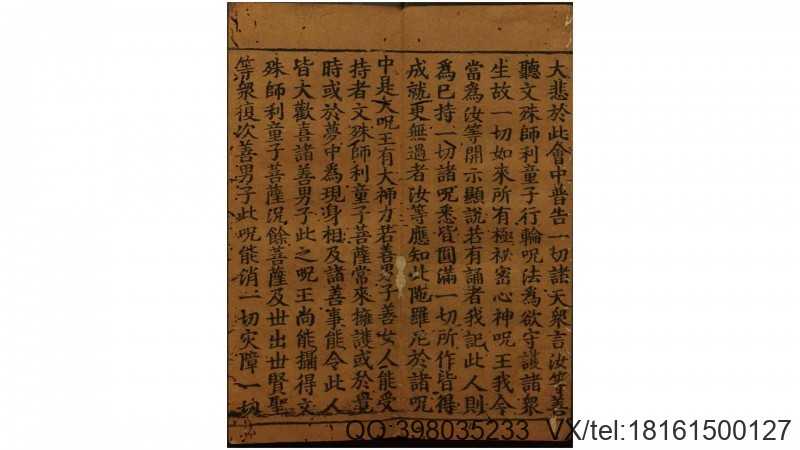 大悲於此會中普告一切諸天衆言汝等善
聽文殊師利童子行輪呪法爲欲守護諸衆
生故一切如來所有極祕密心神呪王我今
當爲汝等開示顯說若有誦者我記此人則
爲已持一切諸呪悉皆圓滿一切所作皆得
成就更無過者汝等應知此陁羅尼於諸呪
中是大呪王有大神力若善男子善女人能受
持者文殊師利童子菩薩常來擁護或於覺
時或於夢中爲現身相及諸善事能令此人
皆大歡喜諸善男子此之呪王尚能攝得文
殊師利童子菩薩况餘菩薩及世出世賢聖
等衆復次善男子此呪能消一切灾障一切
QQ:398035233 VX/tel:18161500127